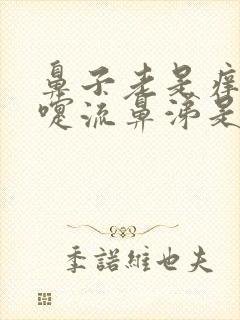 鼻子老是痒
嚏流鼻涕是
季諾維也夫